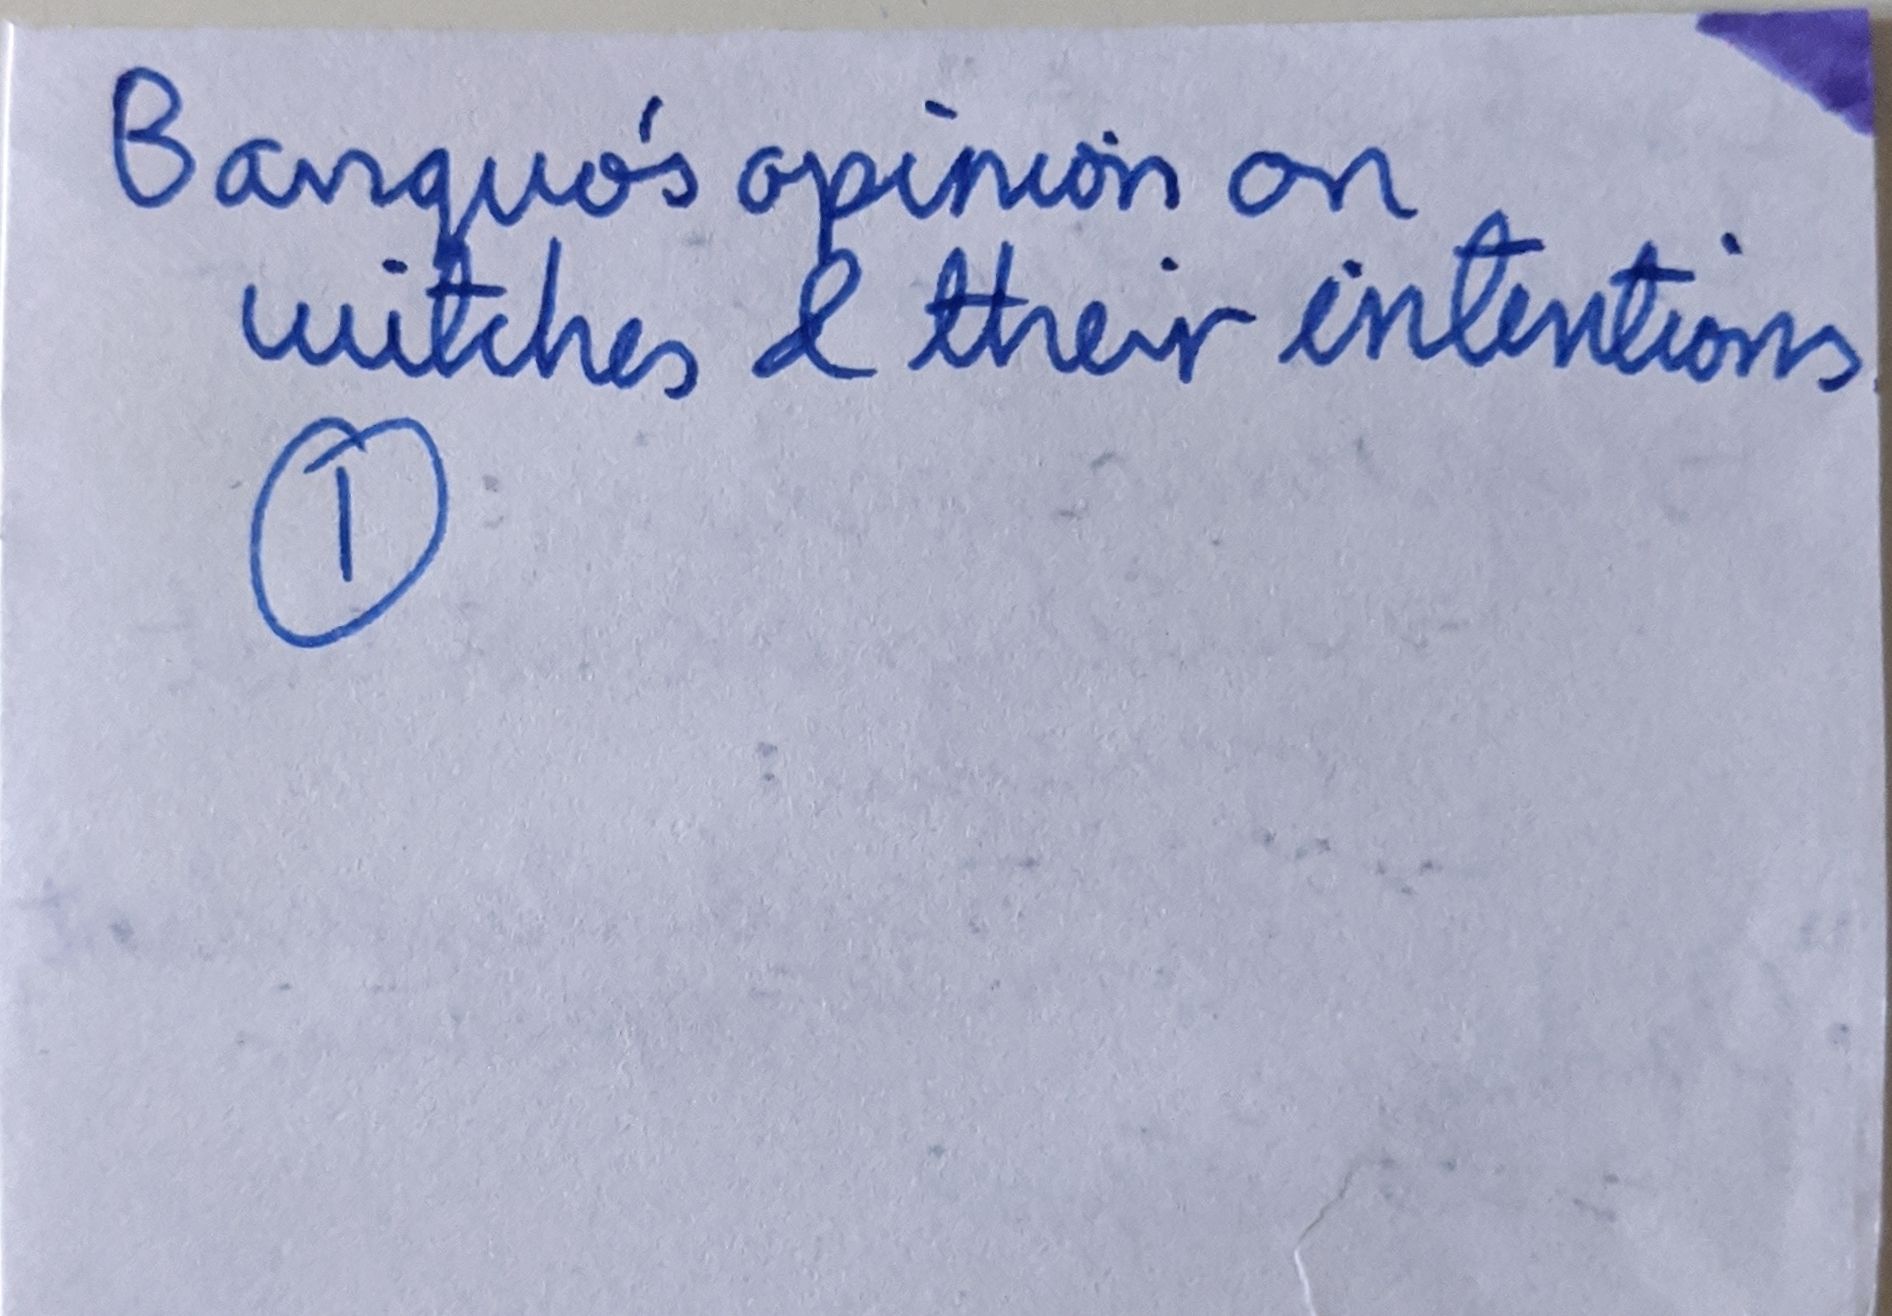 Banquo's opinion on
witches & their intentions.
1